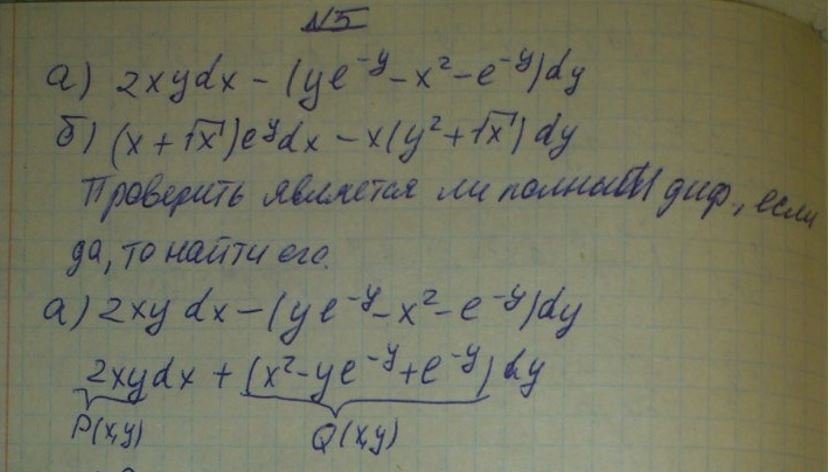 №5
а) 2xydx - (ye^{-y} - x² - e^{-y})dy
б) (x + √x)e^y dx - x(y² + √x)dy
Проверить является ли полным диф., если
да, то найти его.
а) 2xy dx - (ye^{-y} - x² - e^{-y})dy
2xydx + (x² - ye^{-y} + e^{-y})dy
P(x,y) Q(x,y)